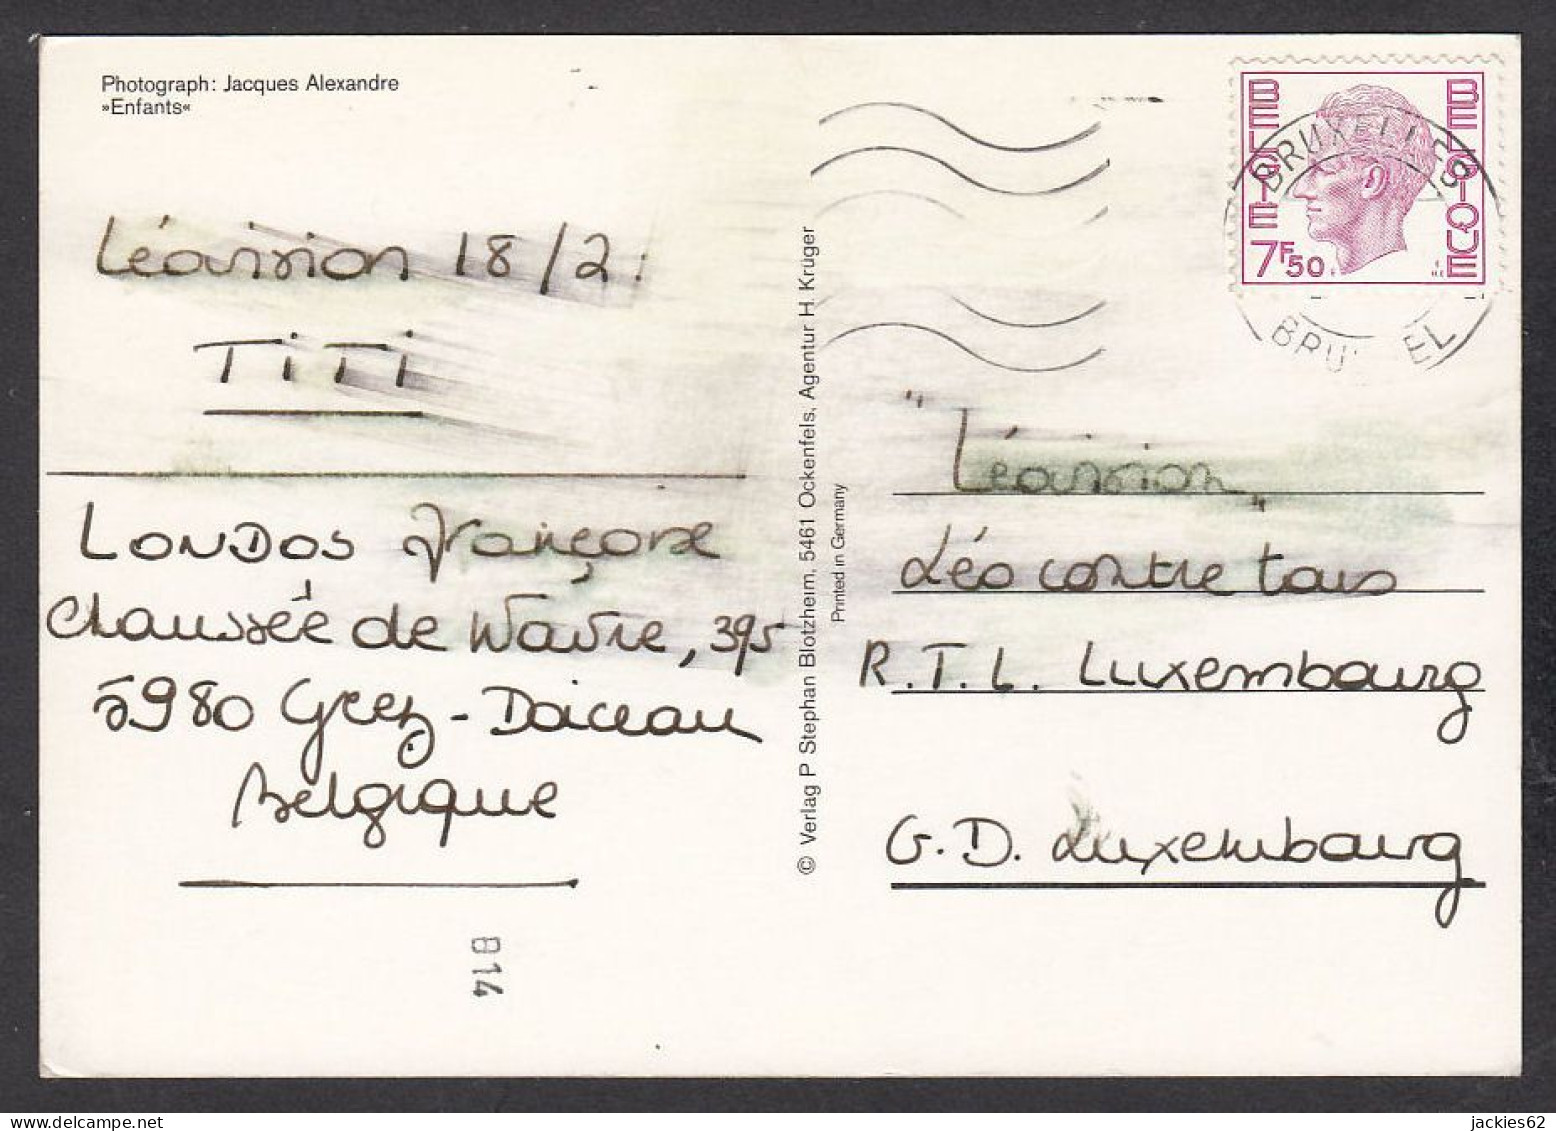 Photograph: Jacques Alexandre
»Enfants«
Léovision 18/2.
TiTi
LONDOS Françoise
Chaussée de Wavre, 395
5980 Grez-Doiceau
Belgique
814
© Verlag P Stephan Blotzheim, 5461 Ockenfels, Agentur H. Krüger
Printed in Germany
BELGIE
BELGIQUE
7F50
BRUXELLES
BRUSSEL
"Léovision"
Léo contre tous
R.T.L. Luxembourg
G.D. Luxembourg
jackies62